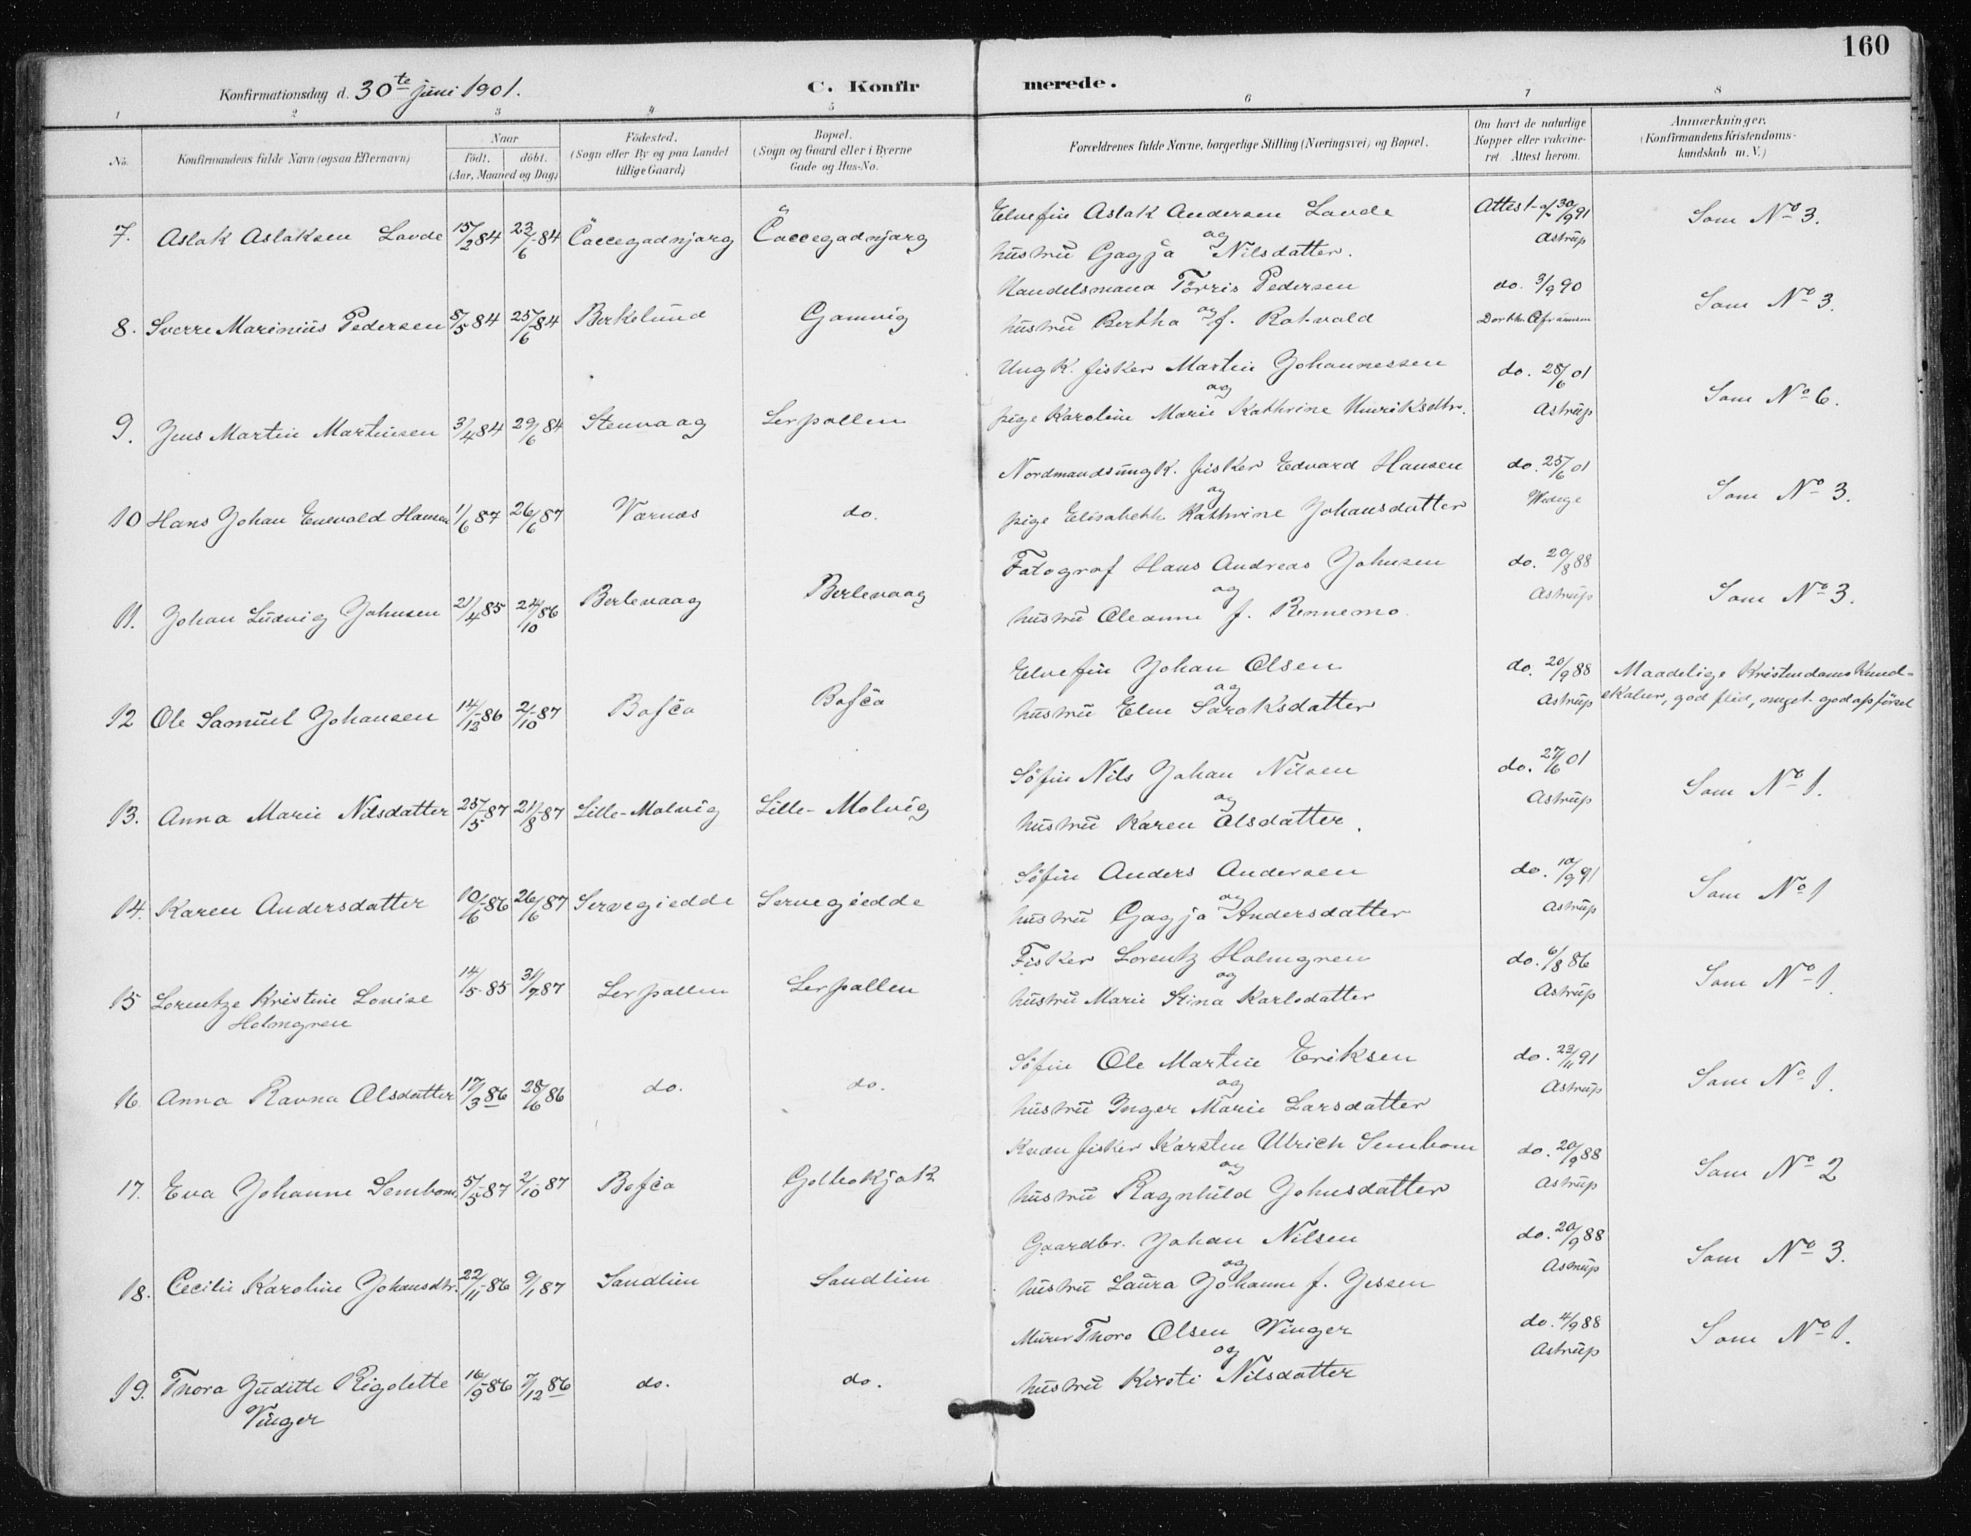 160
Konfirmationsdag d. 30te juni 1901. C. Konfirmerede.
1 2 3 4 5 6 7 8
No. Konfirmandens fulde Navn (ogsaa Efternavn) Naar født. døbt. (Aar, Maaned og Dag) Födested. (Sogn eller By og paa Landet tillige Gaard) Bopæl. (Sogn og Gaard eller i Byerne Gade og Hus-No. Forældrenes fulde Navne, borgerlige Stilling (Næringsvei) og Bopæl. Om havt de naturlige Kopper eller vakcineret Attest herom. Anmærkninger. (Konfirmandens Kristendomskundskab m.V.)
7. Aslak Aslaksen Lavde 15/2 84 23/6 84 Čaccegadnjarg Čaccegadnjarg Elvefin Aslak Andersen Lavde Attest af 30/9 91 Som No 3.
og
hustru Gagja Nilsdatter. Astrup
8. Sverre Marinius Pedersen 5/5 84 25/6 84 Birkelund Gamvig Handelsmand Törris Pedersen do. 3/9 90 Som No 3.
og
hustru Bertha f. Rotvold
9. Jens Martin Martinsen 3/4 84 29/6 84 Stenvaag Lerpollen Ungk. fisker Martin Johannessen do. 28/6 01 Som No 6.
og
pige Karolin Marie Kathrine Henriksdtr. Astrup
10 Hans Johan Enevald Hansen 1/6 87 26/6 87 Værnæs do. Nordmandsungk. fisker Edvard Hansen do. 25/6 01 Som No 3.
og
pige Elisabeth Kathrine Johansdatter Wedege
11. Johan Ludvig Johnsen 21/4 85 24/10 86 Berlevaag Berlevaag Fotograf Hans Andreas Johnsen do. 20/8 88 Som No 3.
og
hustru Oleanna f. Rennemo Astrup
12 Ole Samuel Johansen 14/12 86 2/10 87 Bofča Bofča Elvefin Johan Olsen do. 20/9 88 Maadelige Kristendomskund-
og
hustru Elen Saraksdatter Astrup skaber, god flid, meget god opførsel
13. Anna Marie Nilsdatter 25/5 87 21/8 87 Lille-Molvig Lille-Molvig Söfin Nils Johan Nilsen do. 27/6 01 Som No 1.
og
hustru Karen Olsdatter. Astrup
14. Karen Andersdatter 10/6 86 26/6 87 Servegiedde Servegiedde Söfin Anders Andersen do. 10/9 91 Som No 1
og
hustru Gagja Andersdatter Astrup
15 Lorentze Kristine Lovise 14/5 85 31/7 87 Lerpollen Lerpollen Fisker Lorentz Holmgren do. 6/8 86 Som No 1.
Holmgren og
hustru Marie Stina Karlsdatter Astrup
16. Anna Ravna Olsdatter 17/3 86 28/6 86 do. do. Söfin Ole Martin Eriksen do. 23/11 91 Som No 1.
og
hustru Inger Marie Larsdatter Astrup
17. Eva Johanne Sembom 5/5 87 2/10 87 Bofča Goltekjok Kvæn fisker Karsten Ulrich Sembom do. 20/9 88 Som No 2
og
hustru Ragnhild Johnsdatter Astrup
18. Cecilie Karoline Johansdtr. 22/11 86 9/1 87 Sandlien Sandlien Gaardbr. Johan Nilsen do. 20/9 88 Som No 3.
og
hustru Laura Johanne f. Jessen Astrup
19. Thora Juditte Rigolette 16/9 86 7/12 86 do. do. Murer Thore Olsen Vinger do. 4/9 88 Som No 1.
Vinger og Astrup
hustru Kirsti Nilsdatter